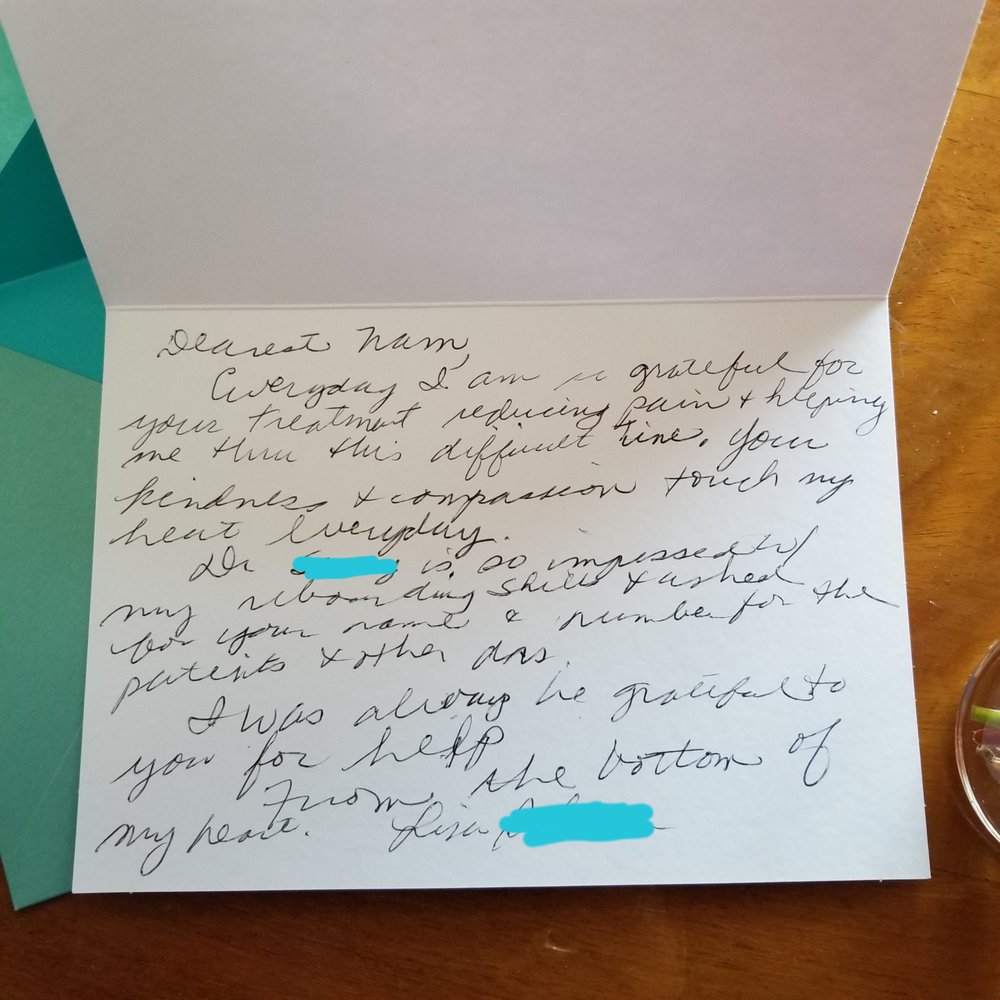 Dearest Nam,
Everyday I am so grateful for
your treatment reducing pain & helping
me thru this difficult time. Your
kindness & compassion touch my
heat everyday.
Dr is so impressed w/
my rebounding skills & asked
for your name & number for the
patients & other drs.
I was always be grateful to
you for help
From the bottom of
my heart. Lisa